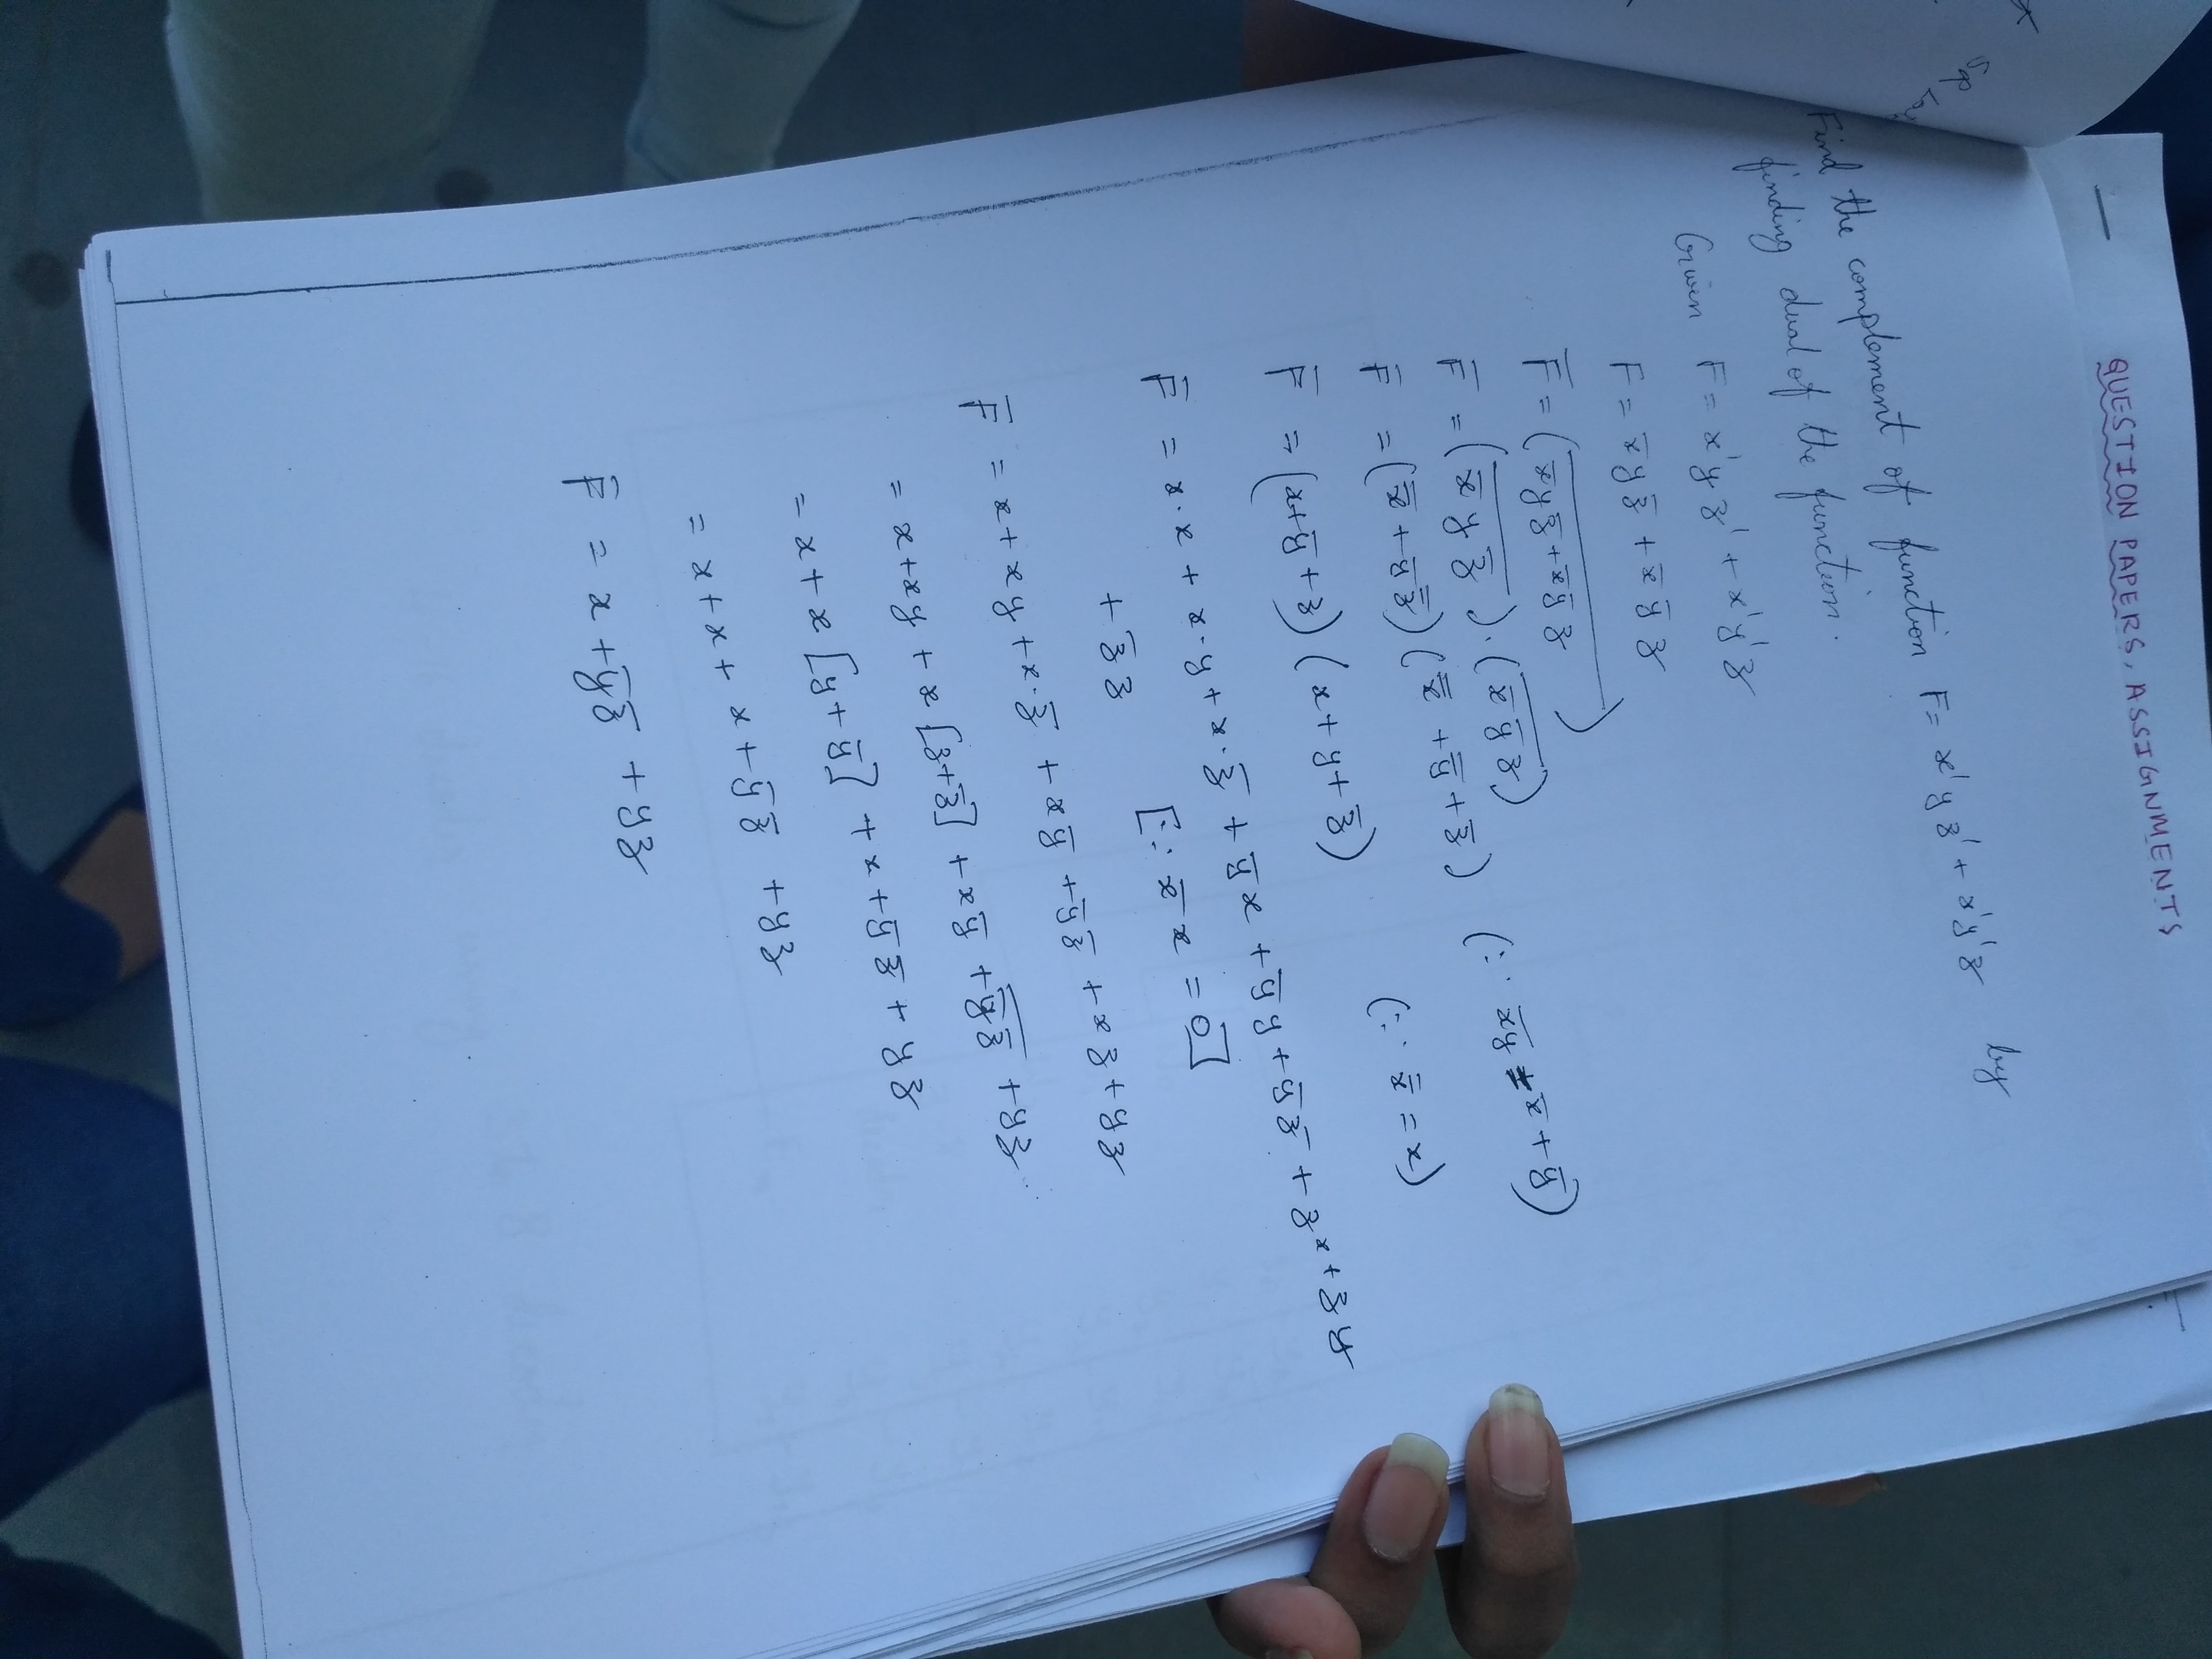 QUESTION PAPERS, ASSIGNMENTS
Find the complement of function F = x'yz' + x'y'z by
finding dual of the function.
Given F = x'yz' + x'y'z
F = x̅yz̅ + x̅y̅z
F̅ = (\overline{x̅yz̅ + x̅y̅z})
F̅ = (\overline{x̅yz̅}) · (\overline{x̅y̅z}) (∵ \overline{xy} = x̅ + y̅)
F̅ = (x̿ + y̅z̿) (x̿ + y̿ + z̅) (∵ x̿ = x)
F̅ = (x + y̅ + z) (x + y + z̅)
F̅ = x·x + x·y + x·z̅ + y̅x + y̅y + y̅z̅ + zx + zy
+ z̅z [∵ x̅x = 0]
F̅ = x + xy + x·z̅ + xy̅ + y̅z̅ + xz + yz
= x + xy + x[z + z̅] + xy̅ + y̅z̅ + yz
= x + x[y + y̅] + x + y̅z̅ + yz
= x + x + x + y̅z̅ + yz
F̅ = x + y̅z̅ + yz